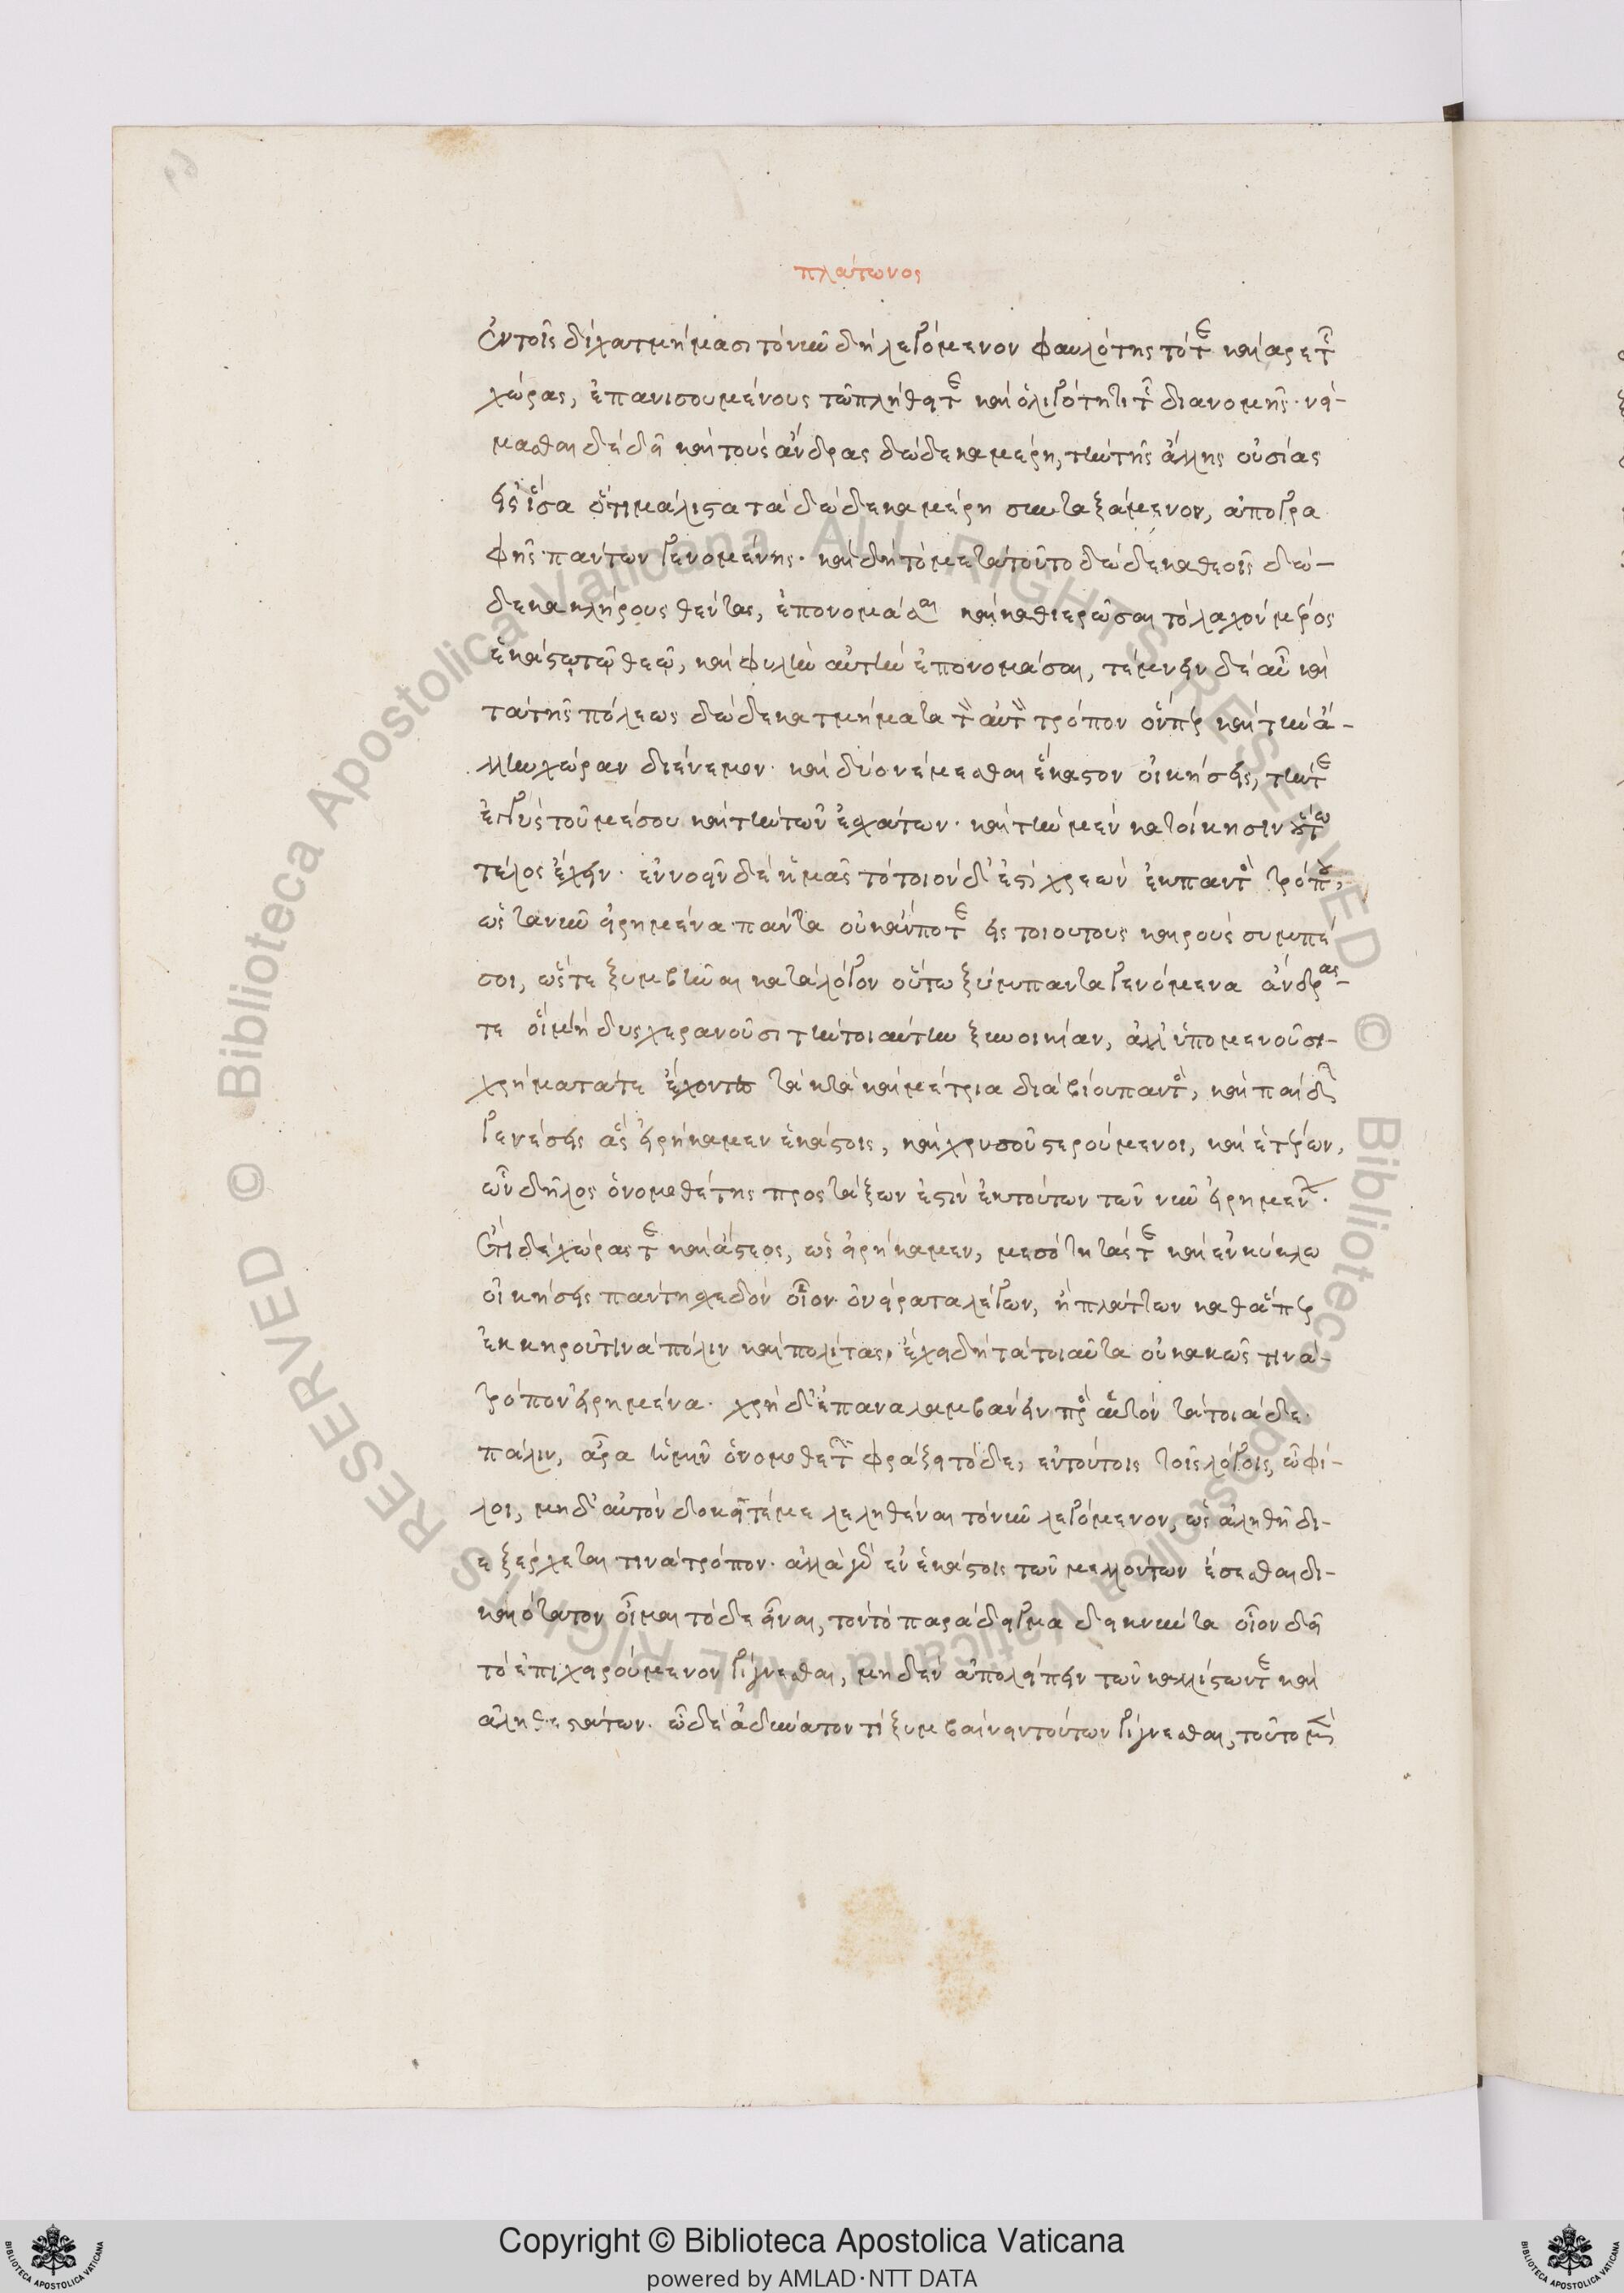 πλάτωνος
ἐν τοῖς δίχα τμήμασι τὸ νῦν δὴ λεγόμενον φαυλότητός τε καὶ ἀρετῆς
χώρας, ἐπανισουμένους τῷ πλήθει τε καὶ ὀλιγότητι τῆς διανομῆς· νεί-
μασθαι δὲ δεῖ καὶ τοὺς ἄνδρας δώδεκα μέρη, τὴν τῆς ἄλλης οὐσίας
εἰς ἴσα ὅτι μάλιστα τὰ δώδεκα μέρη συνταξάμενον, ἀπογρα
φῆς πάντων γενομένης· καὶ δὴ τὸ μετὰ τοῦτο δώδεκα θεοῖς δώ-
δεκα κλήρους θέντας, ἐπονομάσαι καὶ καθιερῶσαι τὸ λαχὸν μέρος
ἑκάστῳ τῷ θεῷ, καὶ φυλὴν αὐτὴν ἐπονομάσαι, τέμνειν δὲ αὖ καὶ
τὰ τῆς πόλεως δώδεκα τμήματα τὸν αὐτὸν τρόπον ὅνπερ καὶ τὴν ἄ-
λλην χώραν διένεμον· καὶ δύο νέμεσθαι ἕκαστον οἰκήσεις, τήν τε
ἐγγὺς τοῦ μέσου καὶ τὴν τῶν ἐσχάτων· καὶ τὴν μὲν κατοίκησιν οὕτω
τέλος ἔχειν· ἐννοεῖν δὲ ἡμᾶς τὸ τοιόνδ' ἐστὶ χρεὼν ἐκ παντὸς τρόπου,
ὡς τὰ νῦν εἰρημένα πάντα οὐκ ἄν ποτε εἰς τοιούτους καιροὺς συμπέ
σοι, ὥστε ξυμβῆναι κατὰ λόγον οὕτω ξύμπαντα γενόμενα ἄνδρας-
τε οἳ μὴ δυσχερανοῦσι τὴν τοιαύτην ξυνοικίαν, ἀλλ' ὑπομενοῦσι-
χρήματά τε ἔχοντες τακτὰ καὶ μέτρια διὰ βίου παντὸς, καὶ παίδων
γενέσεις ἃς εἰρήκαμεν ἑκάστοις, καὶ χρυσοῦ στερούμενοι, καὶ ἑτέρων,
ὧν δῆλος ὁ νομοθέτης προστάξων ἐστὶν ἐκ τούτων τῶν νῦν εἰρημένων.
ἔτι δὲ χώρας τε καὶ ἄστεος, ὡς εἰρήκαμεν, μεσότητάς τε καὶ ἐν κύκλω
οἰκήσεις πάντη σχεδὸν οἷον ὀνείρατα λέγων, ἢ πλάττων καθάπερ
ἐκ κηροῦ τινὰ πόλιν καὶ πολίτας, ἔχει δὴ τὰ τοιαῦτα οὐ κακῶς τινὰ-
τρόπον εἰρημένα· χρὴ δ' ἐπαναλαμβάνειν πρὸς αὑτὸν τὰ τοιάδε·
πάλιν, ἄρα ἡμῖν ὁ νομοθετῶν φράζει τόδε, ἐν τούτοις τοῖς λόγοις, ὦ φί-
λοι, μηδ' αὐτὸν δοκεῖτέ με λεληθέναι τὸ νῦν λεγόμενον, ὡς ἀληθῆ δι-
εξέρχεται τινὰ τρόπον· ἀλλὰ γὰρ ἐν ἑκάστοις τῶν μελλόντων ἔσεσθαι δι-
καιότατον οἶμαι τόδε εἶναι, τὸν τὸ παράδειγμα δεικνύντα οἷον δεῖ
τὸ ἐπιχειρούμενον γίγνεσθαι, μηδὲν ἀπολείπειν τῶν καλλίστων τε καὶ
ἀληθεστάτων. ᾧ δὲ ἀδύνατον τί ξυμβαίνει τούτων γίγνεσθαι, τοῦτο μὲν